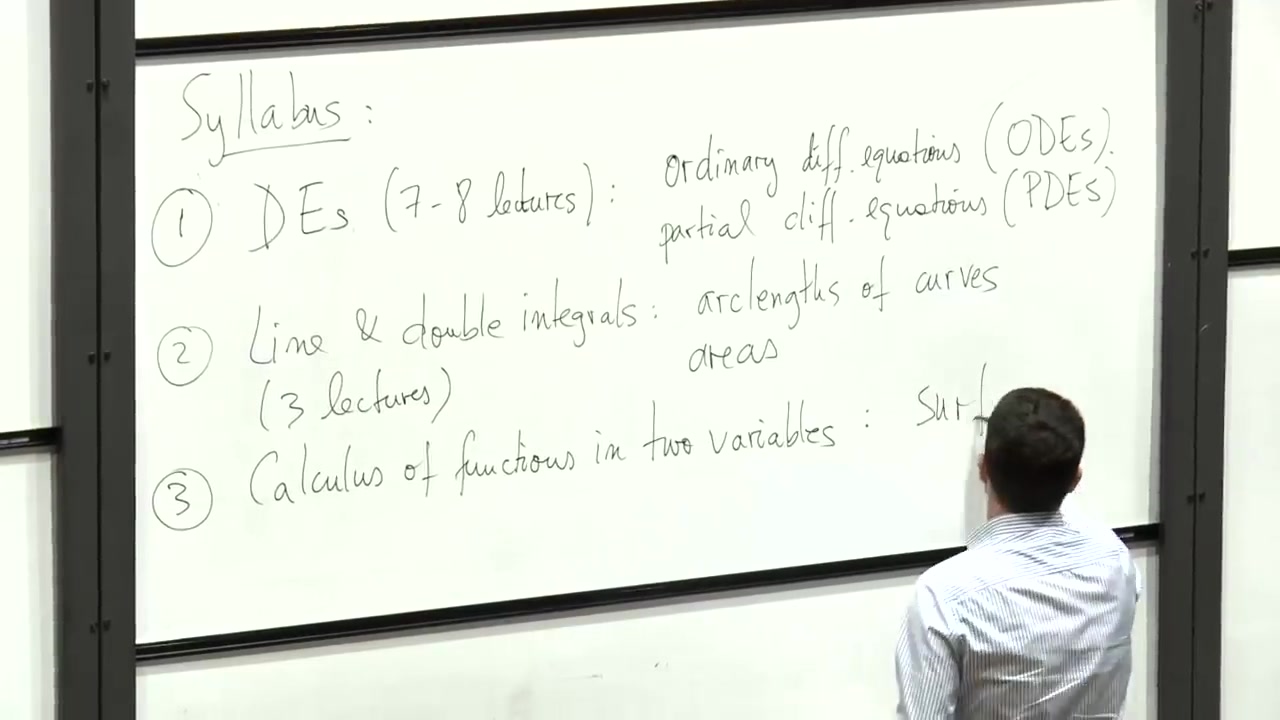 Syllabus :
① DEs (7-8 lectures) : ordinary diff. equations (ODEs).
partial diff. equations (PDEs)
② Line & double integrals : arclengths of curves
areas
(3 lectures)
③ Calculus of functions in two variables : surf